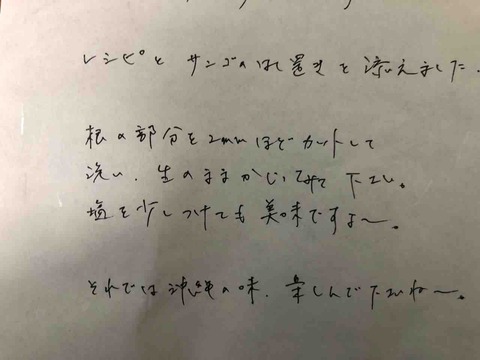 レシピと サンゴのはし置きを添えました.
根の部分を2mmほどカットして
洗い、生のままかじってみて下さい。
塩を少しつけても美味ですよ〜。
それでは沖縄の味、楽しんで下さいね〜。